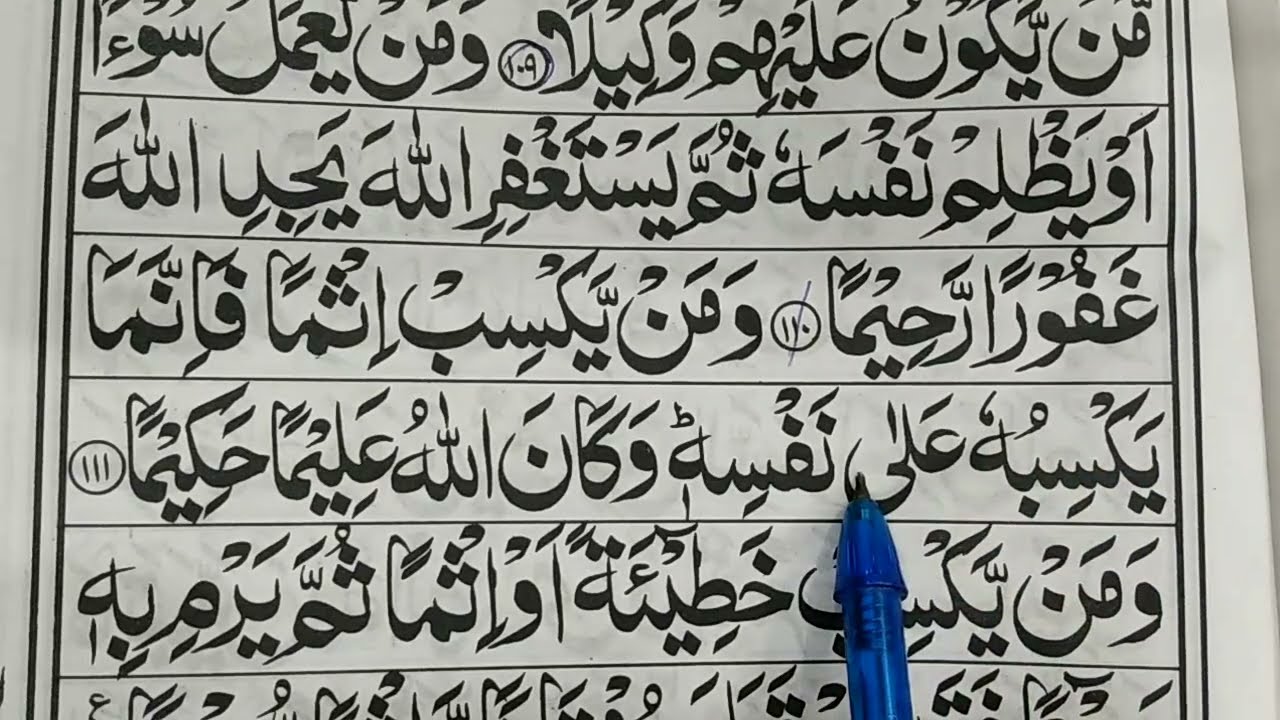 مَّنْ يَّكُوْنُ عَلَيْهِمْ وَكِيْلًا ۝١٠٩ وَمَنْ يَّعْمَلْ سُوْٓءًا
اَوْ يَظْلِمْ نَفْسَهٗ ثُمَّ يَسْتَغْفِرِ اللّٰهَ يَجِدِ اللّٰهَ
غَفُوْرًا رَّحِيْمًا ۝١١٠ وَمَنْ يَّكْسِبْ اِثْمًا فَاِنَّمَا
يَكْسِبُهٗ عَلٰى نَفْسِهٖ ؕ وَكَانَ اللّٰهُ عَلِيْمًا حَكِيْمًا ۝١١١
وَمَنْ يَّكْسِبْ خَطِيْٓـَٔةً اَوْ اِثْمًا ثُمَّ يَرْمِ بِهٖ